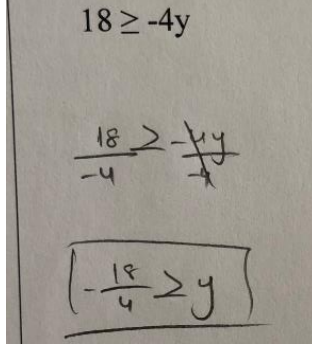 18 ≥ -4y
18/-4 ≥ -4y/-4
-18/4 ≥ y